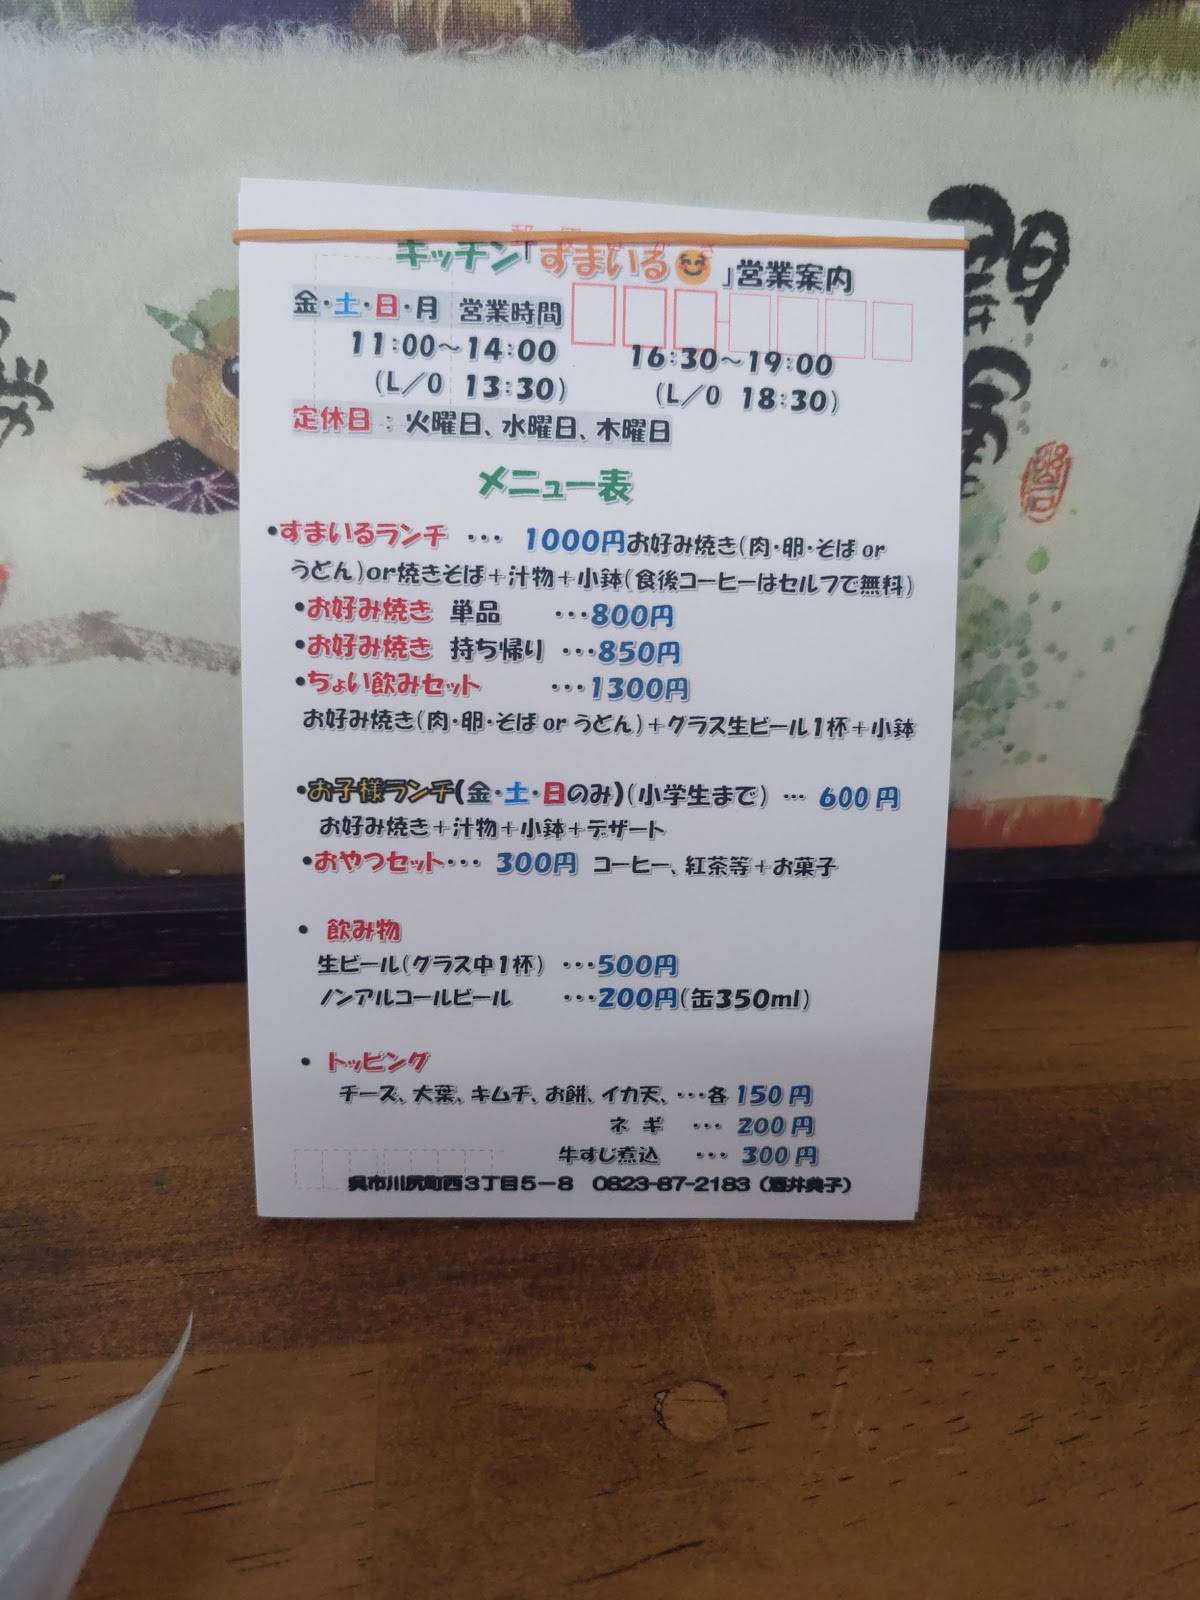 キッチン「すまいる😊」営業案内
金・土・日・月 営業時間
11:00～14:00 16:30～19:00
(L/O 13:30) (L/O 18:30)
定休日：火曜日、水曜日、木曜日
メニュー表
•すまいるランチ ・・・ 1000円お好み焼き(肉・卵・そば or
うどん)or焼きそば＋汁物＋小鉢(食後コーヒーはセルフで無料)
•お好み焼き 単品 ・・・800円
•お好み焼き 持ち帰り ・・・850円
•ちょい飲みセット ・・・1300円
お好み焼き(肉・卵・そば or うどん)＋グラス生ビール1杯＋小鉢
•お子様ランチ(金・土・日のみ)(小学生まで) ・・・ 600円
お好み焼き＋汁物＋小鉢＋デザート
•おやつセット・・・ 300円 コーヒー、紅茶等＋お菓子
• 飲み物
生ビール(グラス中1杯) ・・・500円
ノンアルコールビール ・・・200円(缶350ml)
• トッピング
チーズ、大葉、キムチ、お餅、イカ天、・・・各 150円
ネギ ・・・ 200円
牛すじ煮込 ・・・ 300円
呉市川尻町西3丁目5－8 0823-87-2183（酒井典子）